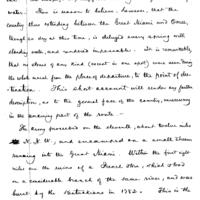 water. This is reason to believe, however, that the
country thus extending between the Great Miami and
though so dry at this time, is deluged every spring with
water, and rendered impassable. It is remarkable
that no stone of any kind (except in one spot) were seen
the whole march from the place of departure, to the point of des-
tination. This short account will render any further
description, as to the general face of the country, unnecessary
in the ensuing part of the route.
The army proceeded on the eleventh, about twelve miles
N. N. W., and encamped on a small stream
running into the Great Miami. Within the first eight
miles are the ruins of a Store, which stood
on a considerable branch of the same river, and was
burnt by the Kentuckians in 1782. This is the